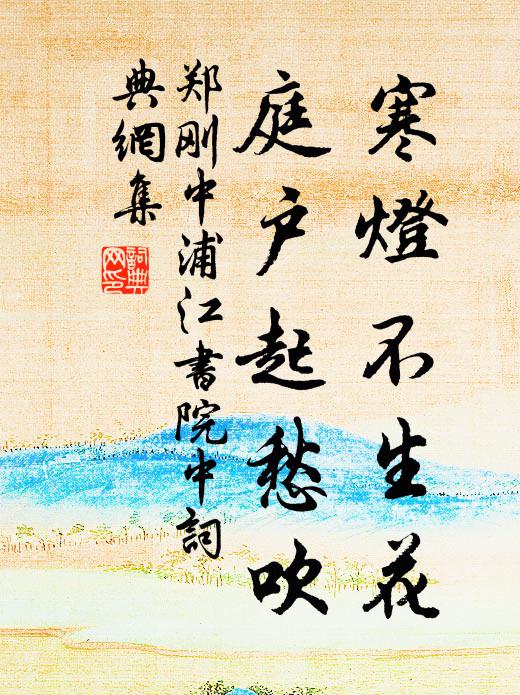 寒燈不生花
庭户起愁吹
郑刚中浦江書院中詞
典網集
詞典
网印